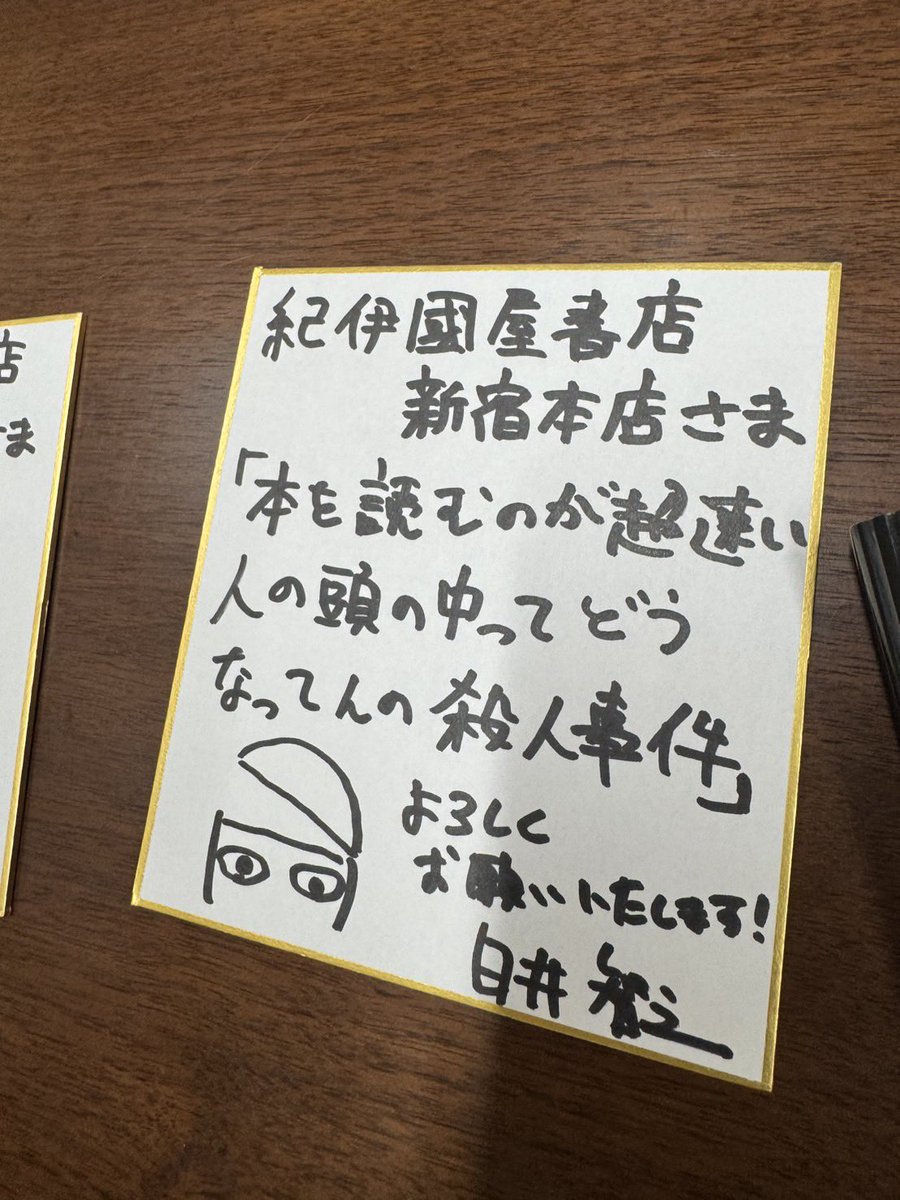 紀伊國屋書店
新宿本店さま
「本を読むのが超速い
人の頭の中ってどう
なってんの殺人事件」
よろしく
お願いいたします!
白井智之
店
さま